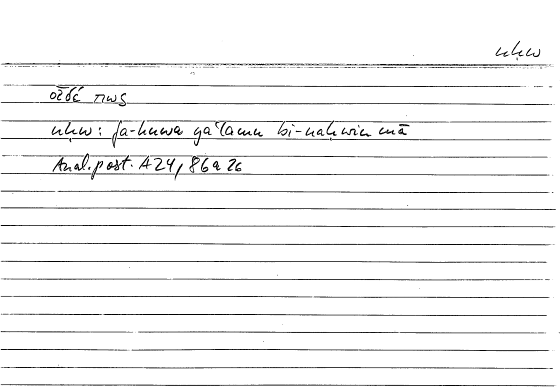 nḥw
οἶδέ πως
nḥw: fa-huwa yaʿlamu bi-naḥwin mā
Anal. post. A 24, 86 a 26